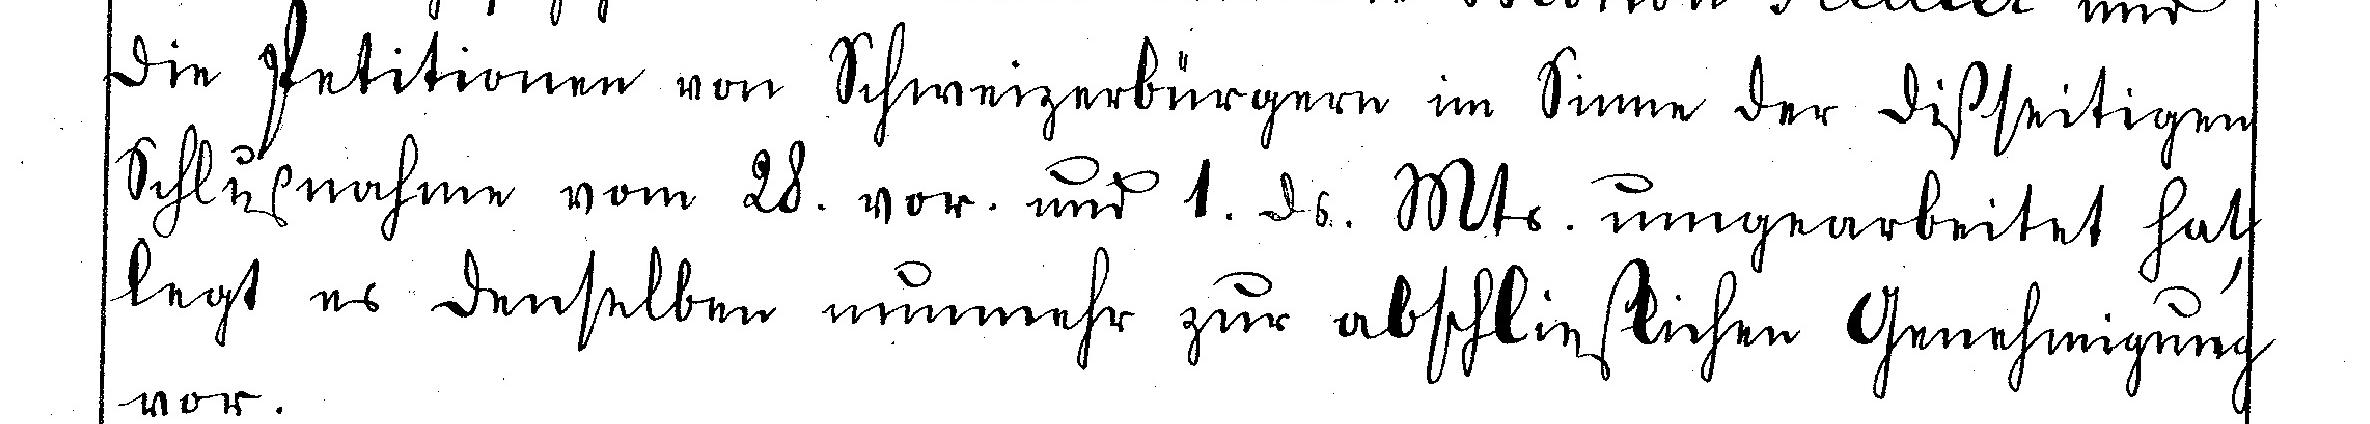 und
die Petitionen von Schweizerbürgern im Sinne der dißseitigen
Schlußnahme vom 28. vor. und 1. ds. Mts. umgearbeitet hat,
legt es denselben nunmehr zur abschließlichen Genehmigung
vor.